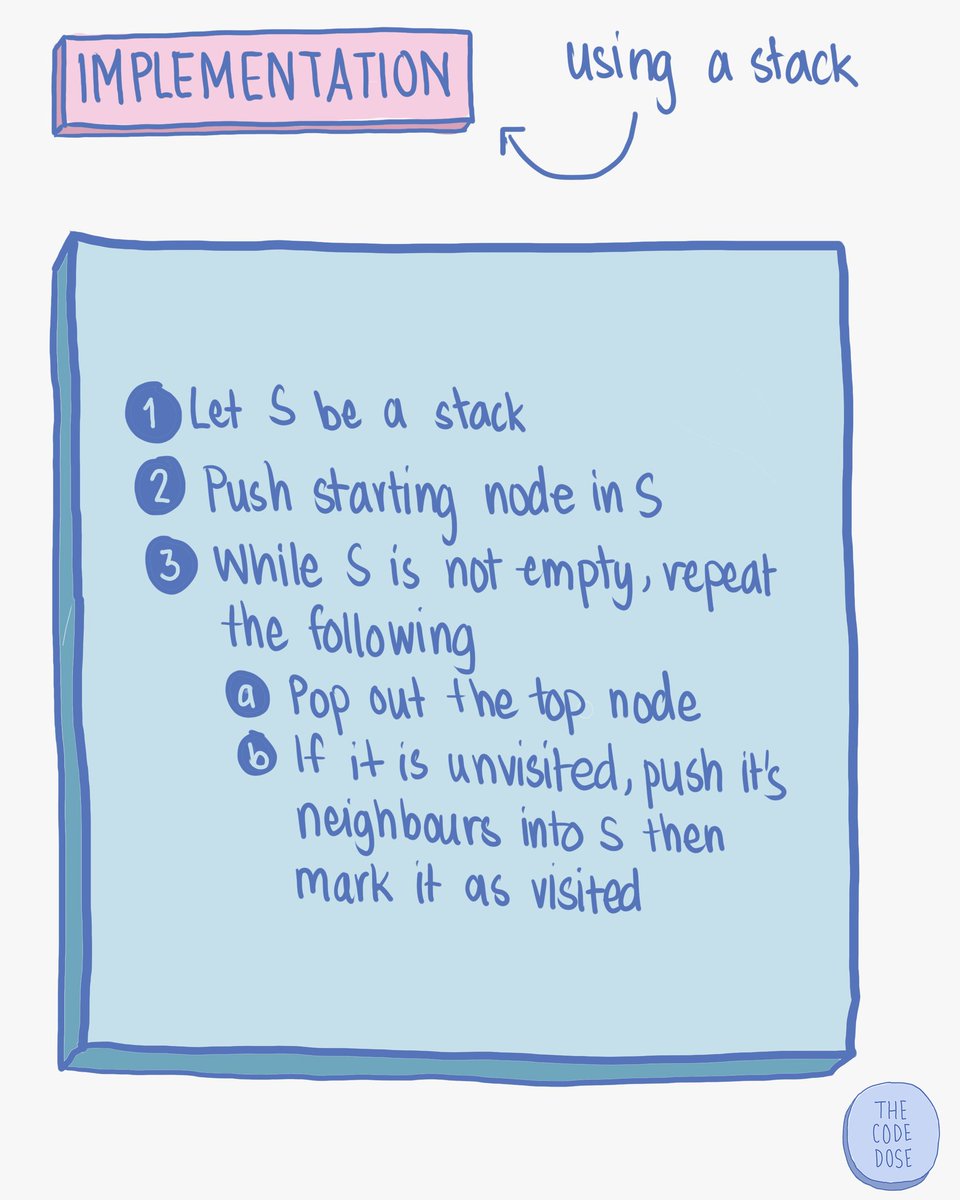 IMPLEMENTATION
using a stack
1 Let S be a stack
2 Push starting node in S
3 While S is not empty, repeat
the following
a Pop out the top node
b If it is unvisited, push it's
neighbours into S then
mark it as visited
THE
CODE
DOSE